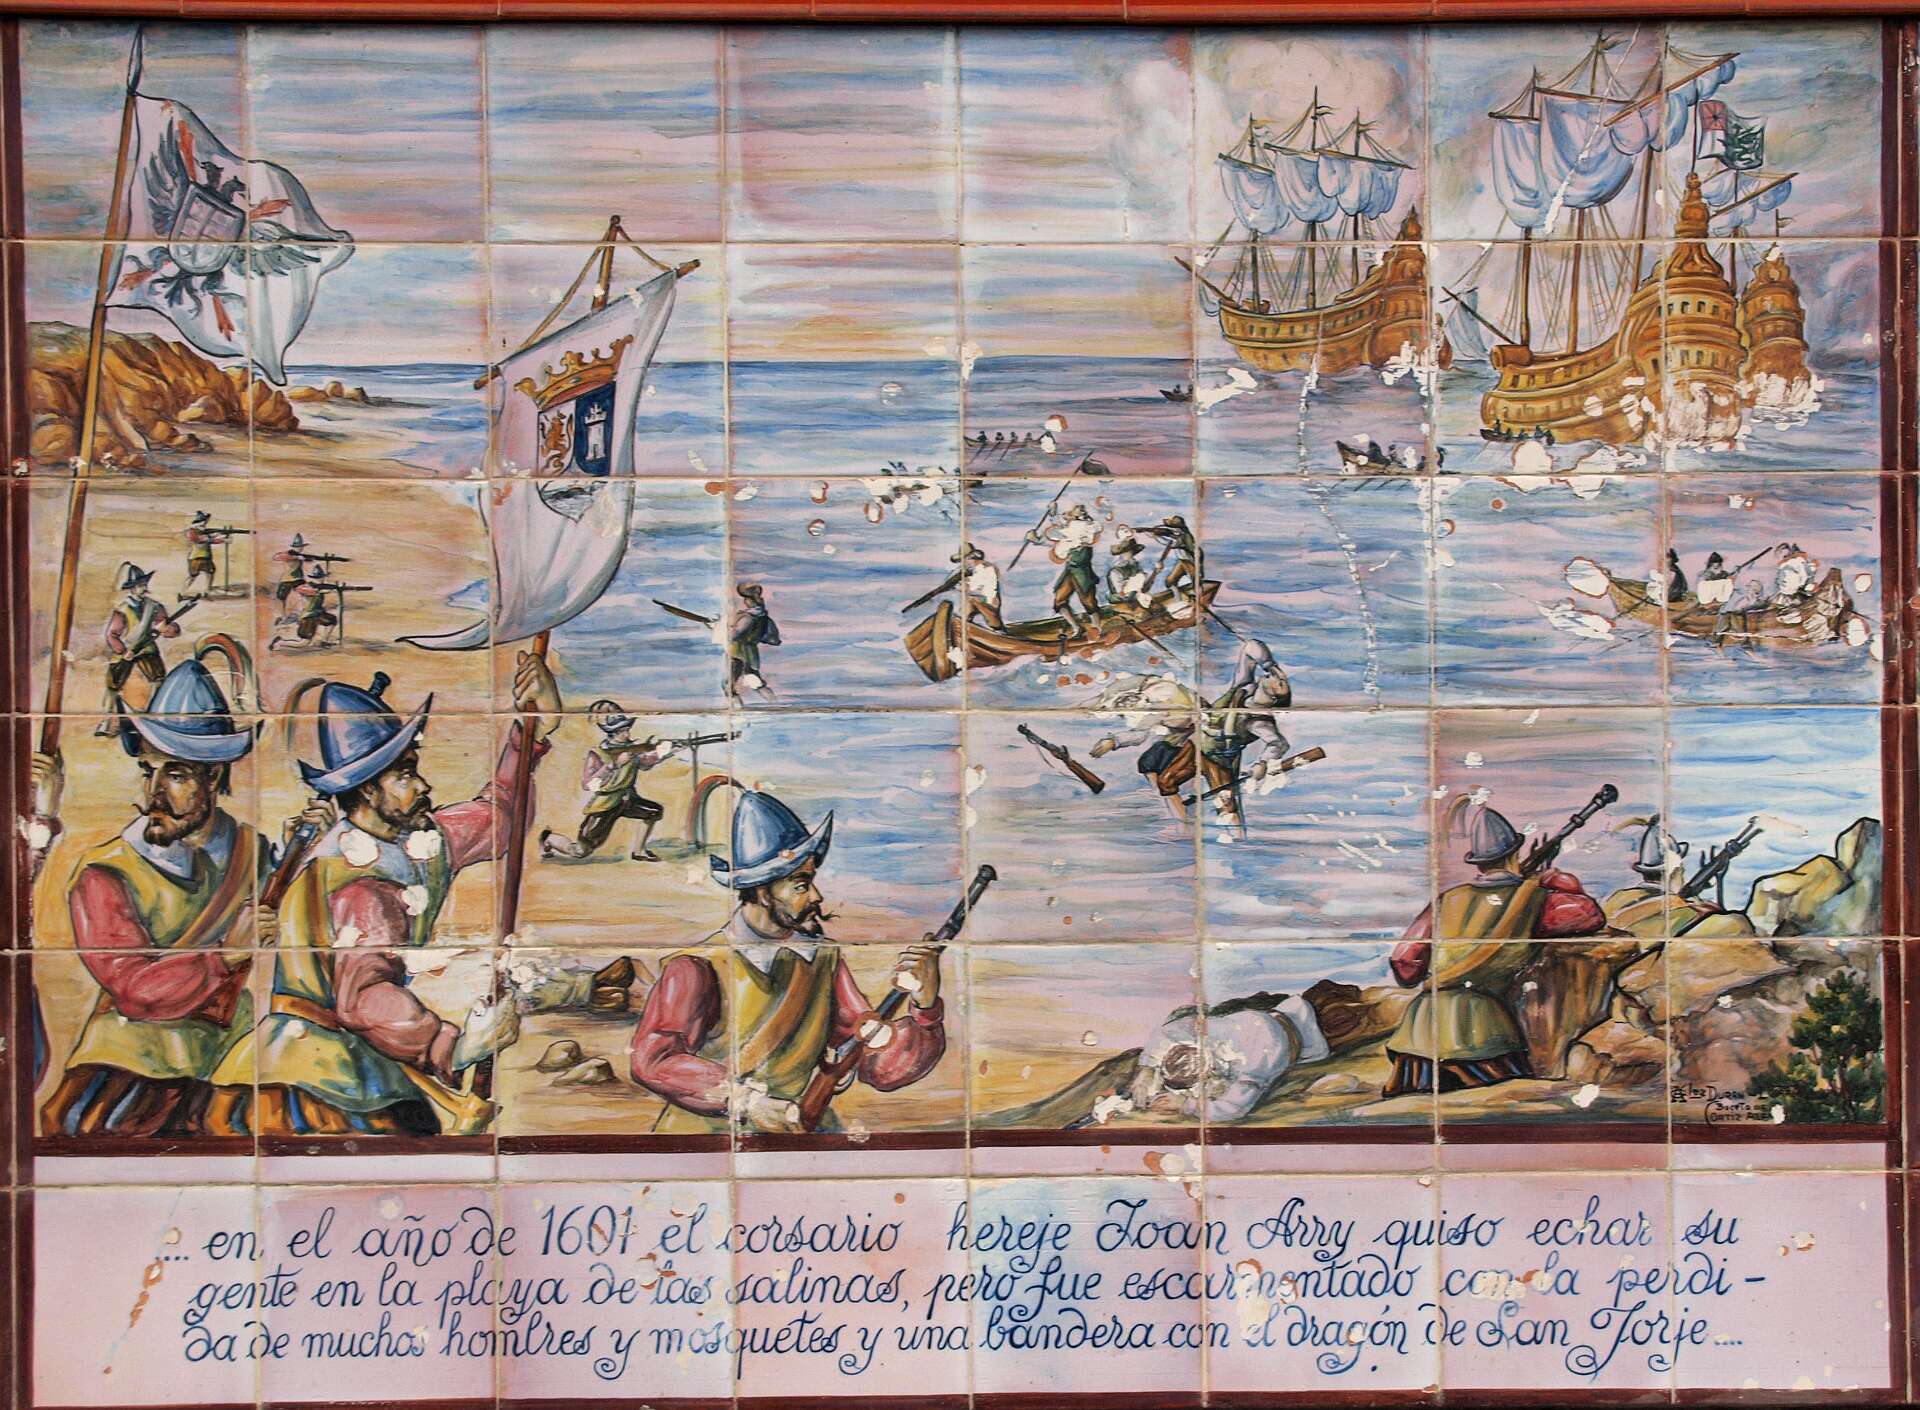 .... en el año de 1601 el corsario hereje Joan Arry quiso echar su
gente en la playa de las salinas, pero fue escarmentado con la perdi-
da de muchos hombres y mosquetes y una bandera con el dragón de San Jorje....
Duran
Boceto de
Ortiz